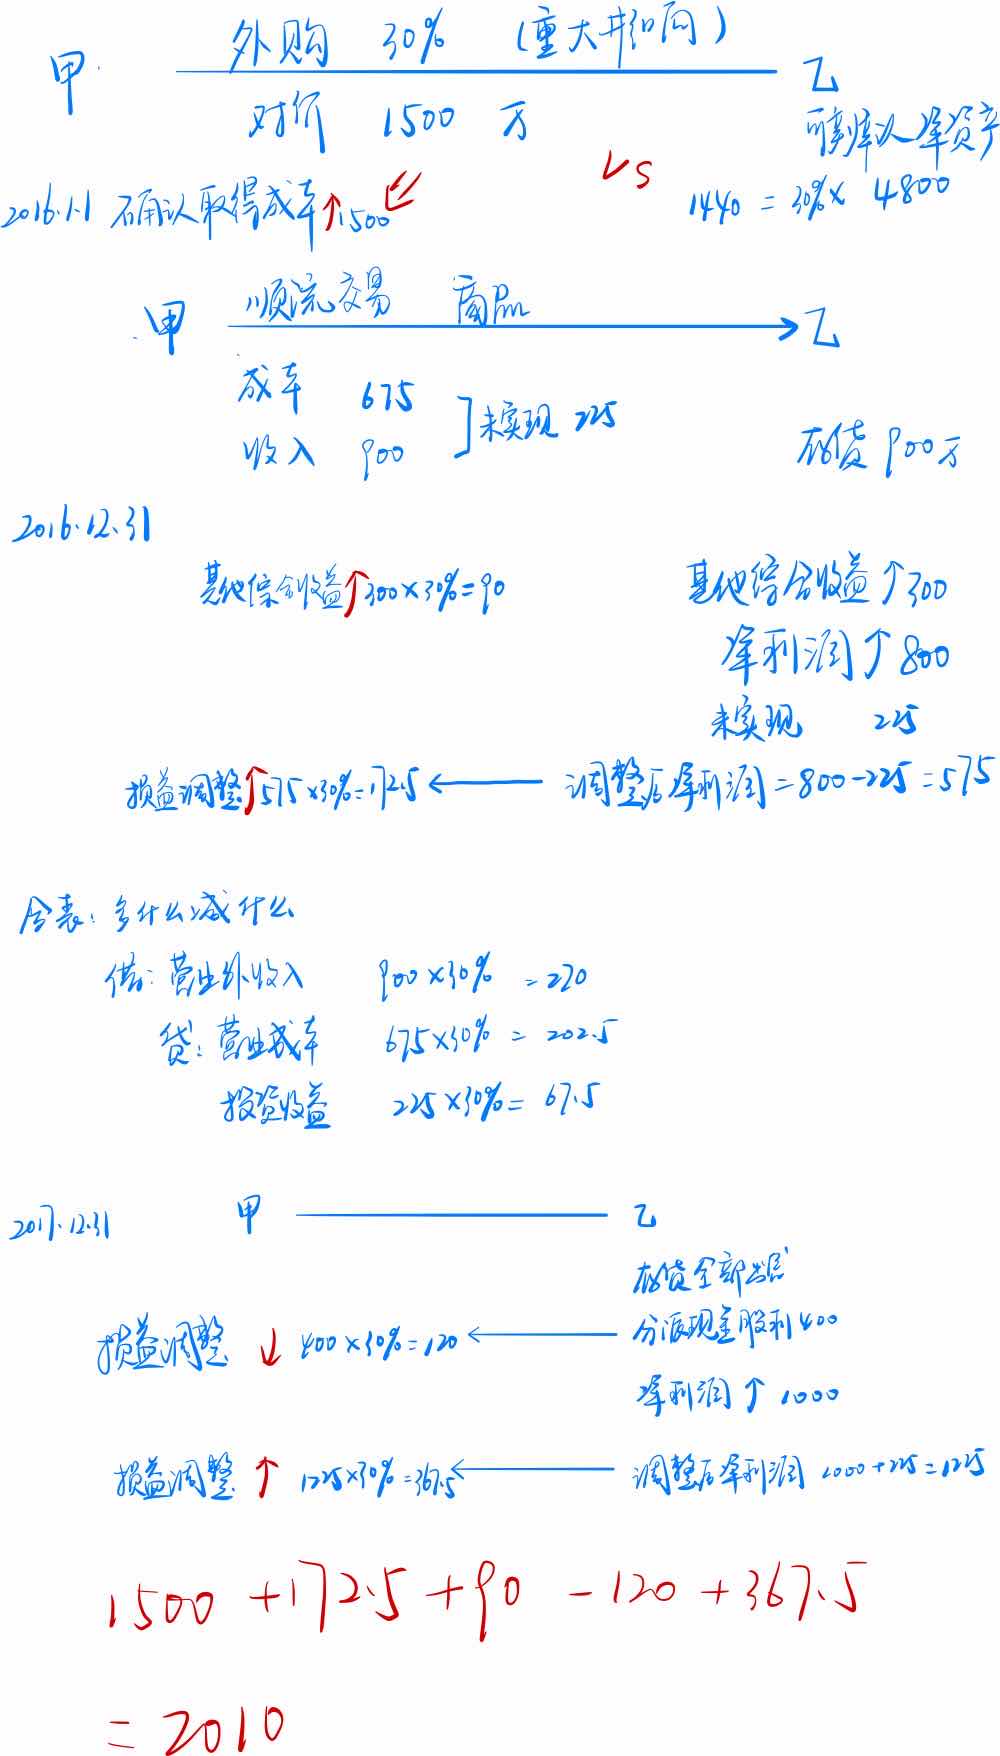 外购 30% (重大影响)
甲 乙
对价 1500 万
可辨认净资产
VS
2016.1.1 确认取得成本↑1500
1440 = 30% × 4800
顺流交易 商品
甲 乙
成本 675
收入 900
未实现 225
存货 900万
2016.12.31
其他综合收益↑300×30%=90
其他综合收益↑300
净利润↑800
未实现 225
损益调整↑575×30%=172.5
调整后净利润=800-225=575
合表: 多什么减什么
借: 营业外收入 900×30% =270
贷: 营业成本 675×30% = 202.5
投资收益 225×30%= 67.5
2017.12.31 甲 乙
存货全部出售
损益调整 ↓ 400×30%=120
分派现金股利400
净利润↑1000
损益调整 ↑ 1225×30%=367.5
调整后净利润 1000+225=1225
1500 +172.5 +90 -120 +367.5
= 2010